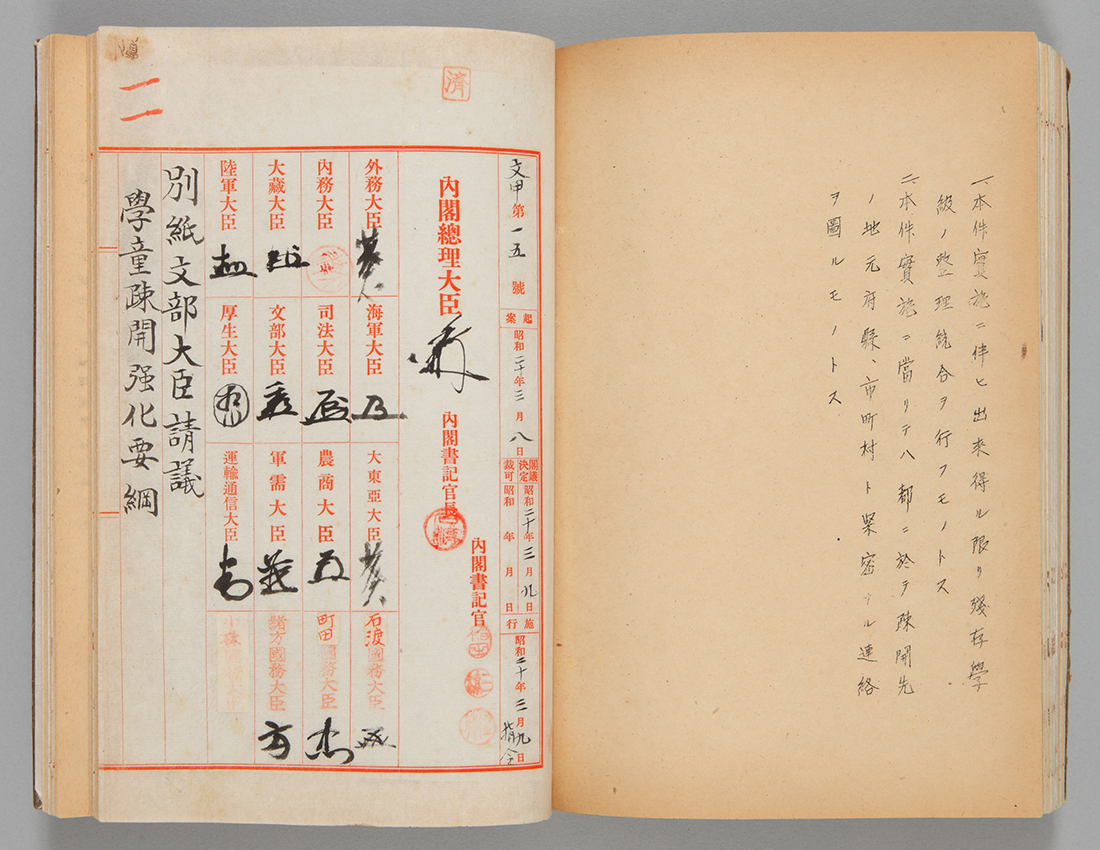 一、本件實施ニ伴ヒ出來得ル限リ殘存學
級ノ整理統合ヲ行フモノトス
二、本件實施ニ當リテハ都ニ於テ疎開先
ノ地元府縣、市町村ト緊密ナル連絡
ヲ圖ルモノトス
濟
文甲第一五號
起案
昭和二十年三月八日
閣議決定
昭和二十年三月九日
裁可
昭和 年 月 日
施行
昭和二十年三月九日
指令
內閣總理大臣
內閣書記官長
內閣書記官
外務大臣
海軍大臣
大東亞大臣
石渡國務大臣
內務大臣
司法大臣
農商大臣
町田國務大臣
大藏大臣
文部大臣
軍需大臣
緒方國務大臣
陸軍大臣
厚生大臣
運輸通信大臣
別紙文部大臣請議
學童疎開强化要綱
二